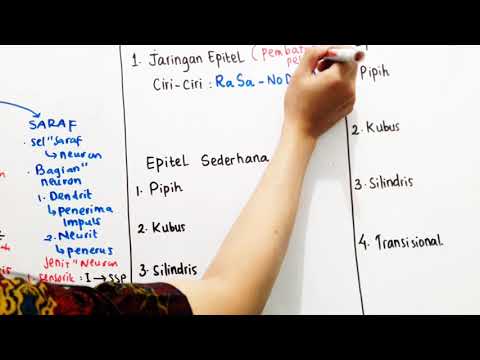 SARAF
. sel"saraf
↳ neuron
. Bagian"
neuron
1. Dendrit
↳ penerima
impuls
2. Neurit
↳ penerus
Jenis" Neuron
1. sensorik : I → SSP
1. Jaringan Epitel (
Ciri-Ciri : RaSa - No
Epitel Sederhana
1. Pipih
2. Kubus
3. Silindris
Pipih
2. Kubus
3. Silindris
4. Transisional